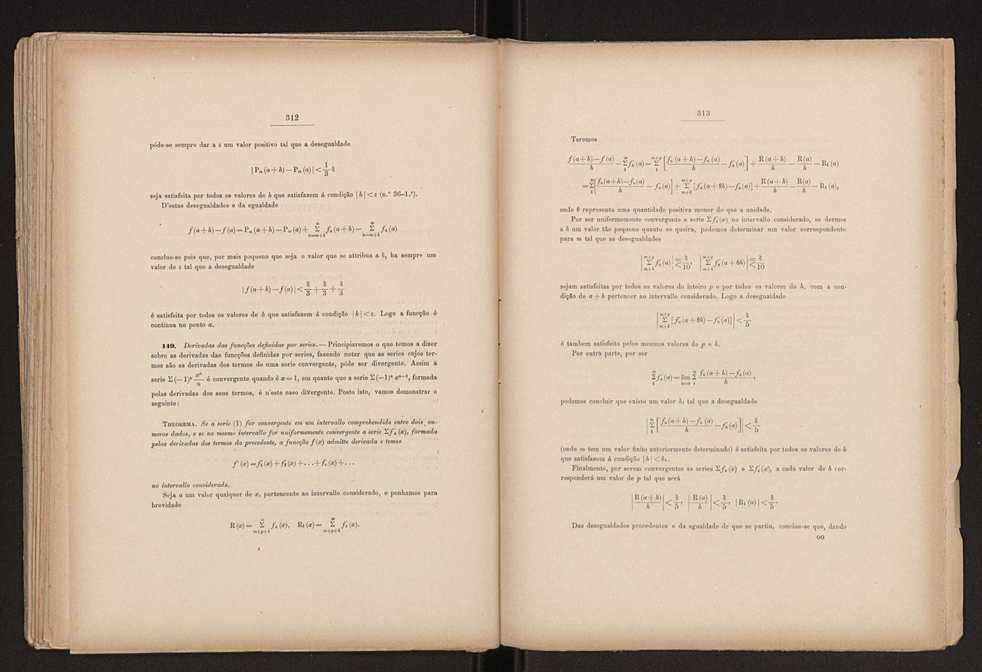 312
póde-se sempre dar a ε um valor positivo tal que a desegualdade
| Pₘ (a + h) − Pₘ (a) | < 1/3 δ
seja satisfeita por todos os valores de h que satisfazem á condição | h | < ε (n.º 36–1.º).
D'estas desegualdades e da egualdade
f (a + h) − f (a) = Pₘ (a + h) − Pₘ (a) + Σ fₙ (a + h) − Σ fₙ (a)
conclue-se pois que, por mais pequeno que seja o valor que se attribua a δ, ha sempre um
valor de ε tal que a desegualdade
| f (a + h) − f (a) | < δ/3 + δ/3 + δ/3
é satisfeita por todos os valores de h que satisfazem á condição | h | < ε. Logo a funcção é
continua no ponto a.
149. Derivadas das funcções definidas por series. — Principiaremos o que temos a dizer
sobre as derivadas das funcções definidas por series, fazendo notar que as series cujos ter-
mos são as derivadas dos termos de uma serie convergente, póde ser divergente. Assim a
serie Σ (− 1)ⁿ xⁿ/n é convergente quando é x = 1, em quanto que a serie Σ (−1)ⁿ xⁿ⁻¹, formada
pelas derivadas dos seus termos, é n'este caso divergente. Posto isto, vamos demonstrar o
seguinte:
THEOREMA. Se a serie (1) for convergente em um intervallo comprehendido entre dois nu-
meros dados, e se no mesmo intervallo for uniformemente convergente a serie Σ f'ₙ (x), formada
pelas derivadas dos termos da precedente, a funcção f (x) admitte derivada e temos
f' (x) = f'₁ (x) + f'₂ (x) + . . . + f'ₙ (x) + . . .
no intervallo considerado.
Seja a um valor qualquer de x, pertencente ao intervallo considerado, e ponhamos para
brevidade
R (x) = Σ fₙ (x), R₁ (x) = Σ f'ₙ (x).
313
Teremos
f (a + h) − f (a)/h − Σ f'ₙ (a) = Σ [fₙ (a + h) − fₙ (a)/h − f'ₙ (a)] + R (a + h)/h − R (a)/h − R₁ (a)
= Σ [fₙ (a + h) − fₙ (a)/h − f'ₙ (a)] + Σ [f'ₙ (a + θh) − f'ₙ (a)] + R (a + h)/h − R (a)/h − R₁ (a),
onde θ representa uma quantidade positiva menor do que a unidade.
Por ser uniformemente convergente a serie Σ f'ₙ (x) no intervallo considerado, se dermos
a δ um valor tão pequeno quanto se queira, podemos determinar um valor correspondente
para m tal que as desegualdades
| Σ f'ₙ (a) | ≦ δ/10, | Σ f'ₙ (a + θh) | ≦ δ/10
sejam satisfeitas por todos os valores do inteiro p e por todos os valores de h, com a con-
dição de a + h pertencer ao intervallo considerado. Logo a desegualdade
| Σ [f'ₙ (a + θh) − f'ₙ (a)] | < δ/5
é tambem satisfeita pelos mesmos valores de p e h.
Por outra parte, por ser
Σ f'ₙ (a) = lim Σ fₙ (a + h) − fₙ (a)/h,
podemos concluir que existe um valor h₁ tal que a desegualdade
| Σ [fₙ (a + h) − fₙ (a)/h − f'ₙ (a)] | < δ/5
(onde m tem um valor finito anteriormente determinado) é satisfeita por todos os valores de h
que satisfazem á condição | h | < h₁.
Finalmente, por serem convergentes as series Σ fₙ (x) e Σ f'ₙ (x), a cada valor de h cor-
responderá um valor de p tal que será
| R (a + h)/h | < δ/5, | R (a)/h | < δ/5, | R₁ (a) | < δ/5.
Das desegualdades precedentes e da egualdade de que se partiu, conclue-se que, dando
OO